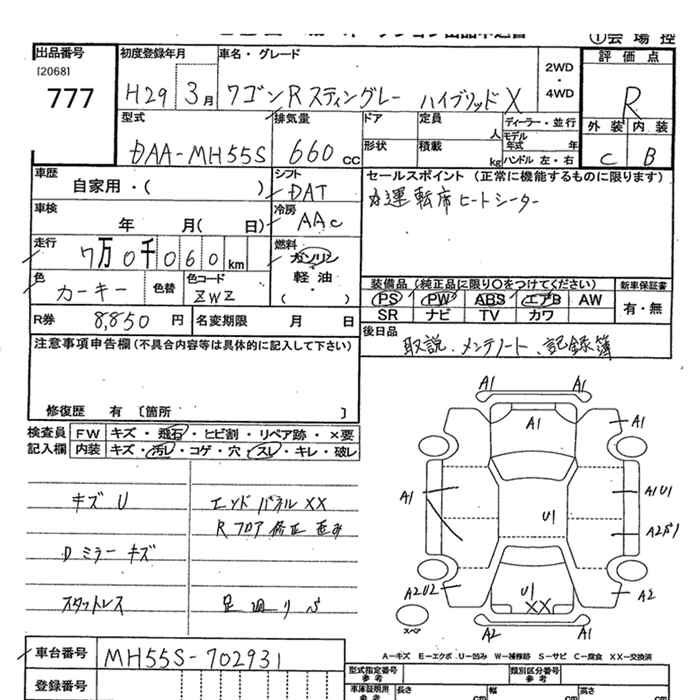 ①会場控
出品番号
[2068]
777
初度登録年月
H29 3月
車名・グレード
ワゴンR スティングレー ハイブリッド X
2WD
・
4WD
評価点
R
外装 内装
C B
型式
DAA-MH55S
排気量
660 cc
ドア
形状
定員 人
積載 kg
ディーラー・並行
モデル年式 年
ハンドル 左・右
車歴
自家用・( )
シフト
DAT
冷房
AAC
セールスポイント (正常に機能するものに限ります)
運転席ヒートシーター
車検
年 月( 日)
走行
7万0千060km
燃料
ガソリン
軽油
( ・ )
色
カーキー
色替
色コード
ZWZ
装備品 (純正品に限り○をつけてください)
PS PW ABS エアB AW
SR ナビ TV カワ
新車保証書
有・無
R券 8,850 円
名変期限 月 日
後日品
取説、メンテノート、記録簿
注意事項申告欄(不具合内容等は具体的に記入して下さい)
修復歴 有 〔箇所 〕
検査員記入欄
FW キズ・飛石・ヒビ割・リペア跡・×要
内装 キズ・汚レ・コゲ・穴・スレ・キレ・破レ
キズ U
エンドパネル XX
Rフロア修正歪み
Dミラーキズ
スタットレス
足廻りサビ
A1 A1
A1 A1
A1 A1U1
U1 A2
A2U2 U1 A2
XX
スペア
A2 A1
A-キズ E-エクボ U-凹み W-補修跡 S-サビ C-腐食 XX-交換済
車台番号
MH55S-702931
登録番号
型式指定番号
参考
類別区分番号
参考
車庫証明用
参考
長さ cm
幅 cm
高さ cm